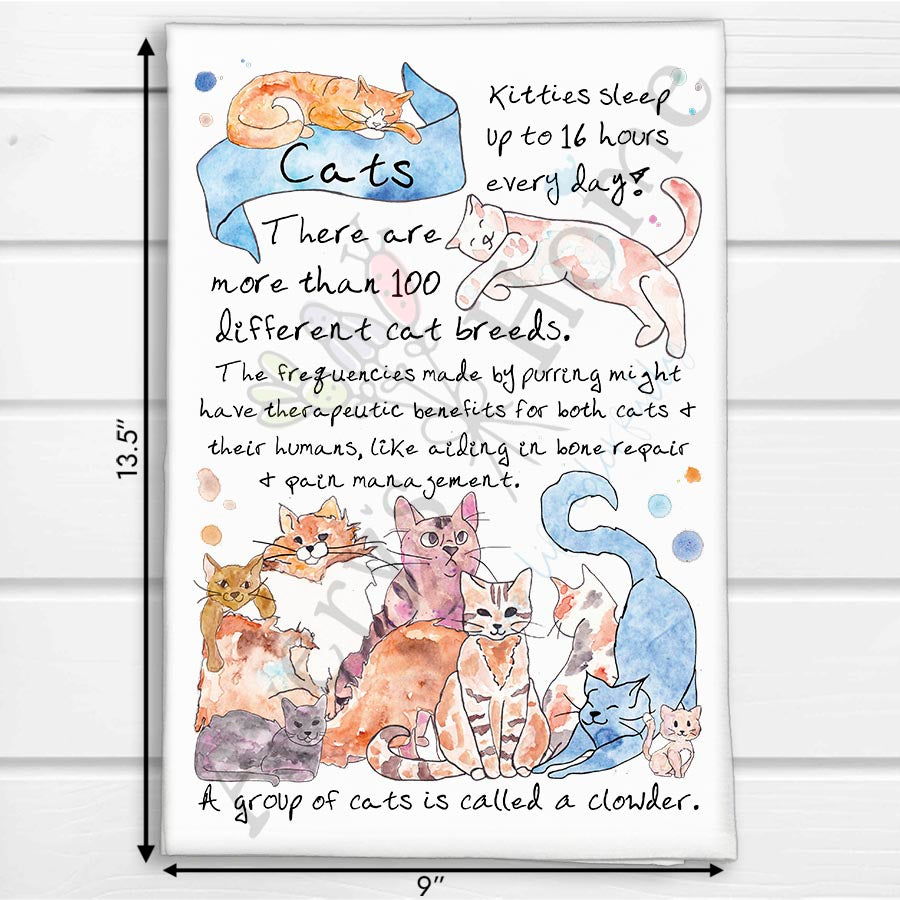 Cats
Kitties sleep
up to 16 hours
every day!
There are
more than 100
different cat breeds.
The frequencies made by purring might
have therapeutic benefits for both cats &
their humans, like aiding in bone repair
& pain management.
A group of cats is called a clowder.
13.5"
9"
Home